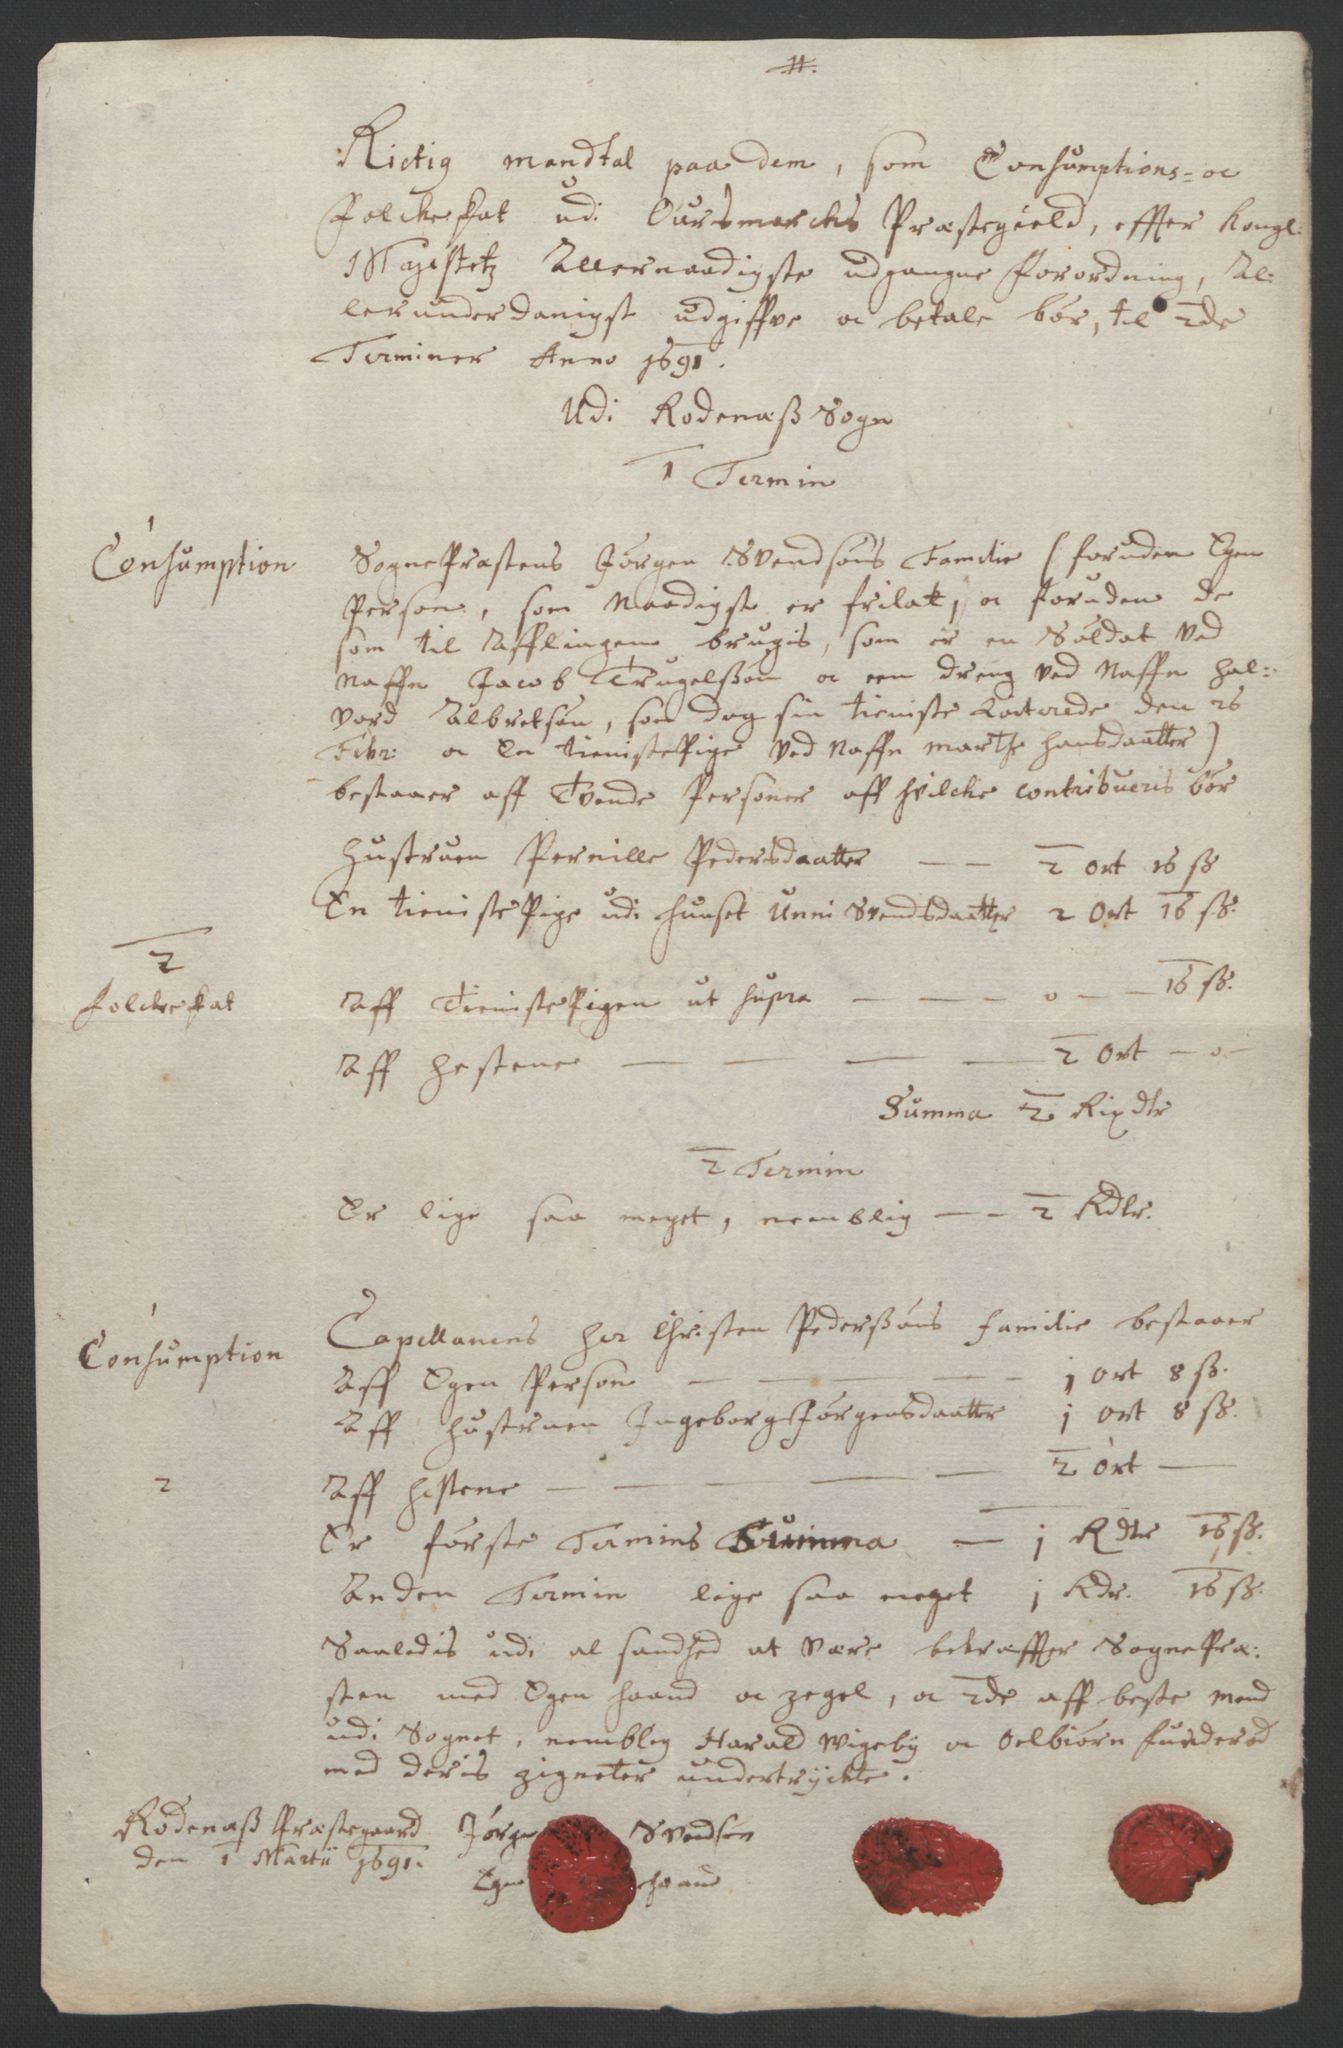 #.
Rictig mandtal paa dem, som Consumptions= oc
folckeskat udi Oursmarckis Præstegield, effter Kongl:
Mayestetz Allernaadigste udgangne forordning, Al:
lerunderdanigst udgiffve oc betale bør, til 2de
Terminer Anno 1691.
Udi Rødenæß Sogn
1 Termin
1
Consumption
SognePræstens Jørgen Svendsøns Familie (foruden Egen
Person, som Naadigst er frilat, oc foruden de
som til Afflingen brugis, som er en Soldat ved
Naffn Jacob Trugelßøn oc een dreng ved Naffn Hal:
vord Albretsøn, som dog sin tieniste den 26
Febr: oc En tienistePige ved Naffn Marthe Hansdaatter)
bestaaer aff Tvende Personer aff hvilche contribueris bør
Hustruen Pernille Pedersdaatter — — 2 Ort 16 ß
En tienistePige udi huuset Unni Svendsdaatter 2 Ort 16 ß.
2
folckeskat
Aff TienistePigen ut supra — — — o — — 16 ß.
Aff Hestene — — — — 2 Ort — o —
Summa 2 Rixdlr
2 Termin
Er lige saa meget, nemblig — — 2 Rdlr.
1
Consumption
Capellanens Her Christen Pederßøns familie bestaaer
Aff Egen Person — — — — — 1 ort 8 ß.
Aff hustruen Ingeborg Jørgensdaatter 1 ort 8 ß.
2
Aff hestene — — — — — 2 ort —
Er første Termins Summa — 1 Rdlr 16 ß.
Anden Termin lige saa meget 1 Rdr. 16 ß.
Saaledis udi al sandhed at være bekræffter SognePræ:
sten med Egen haand oc zegel, oc 2de aff beste mend
udi Sognet, nemblig Harald Wigeby oc Oelbiørn funderød
med deris zigneter undertryckte.
Rødenæß Præstegaard
den 1 Martii 1691.
Jørgen Svendsen
Egen haand